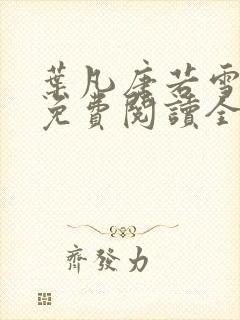 葉凡唐若雪
免費閱讀全
齊發力